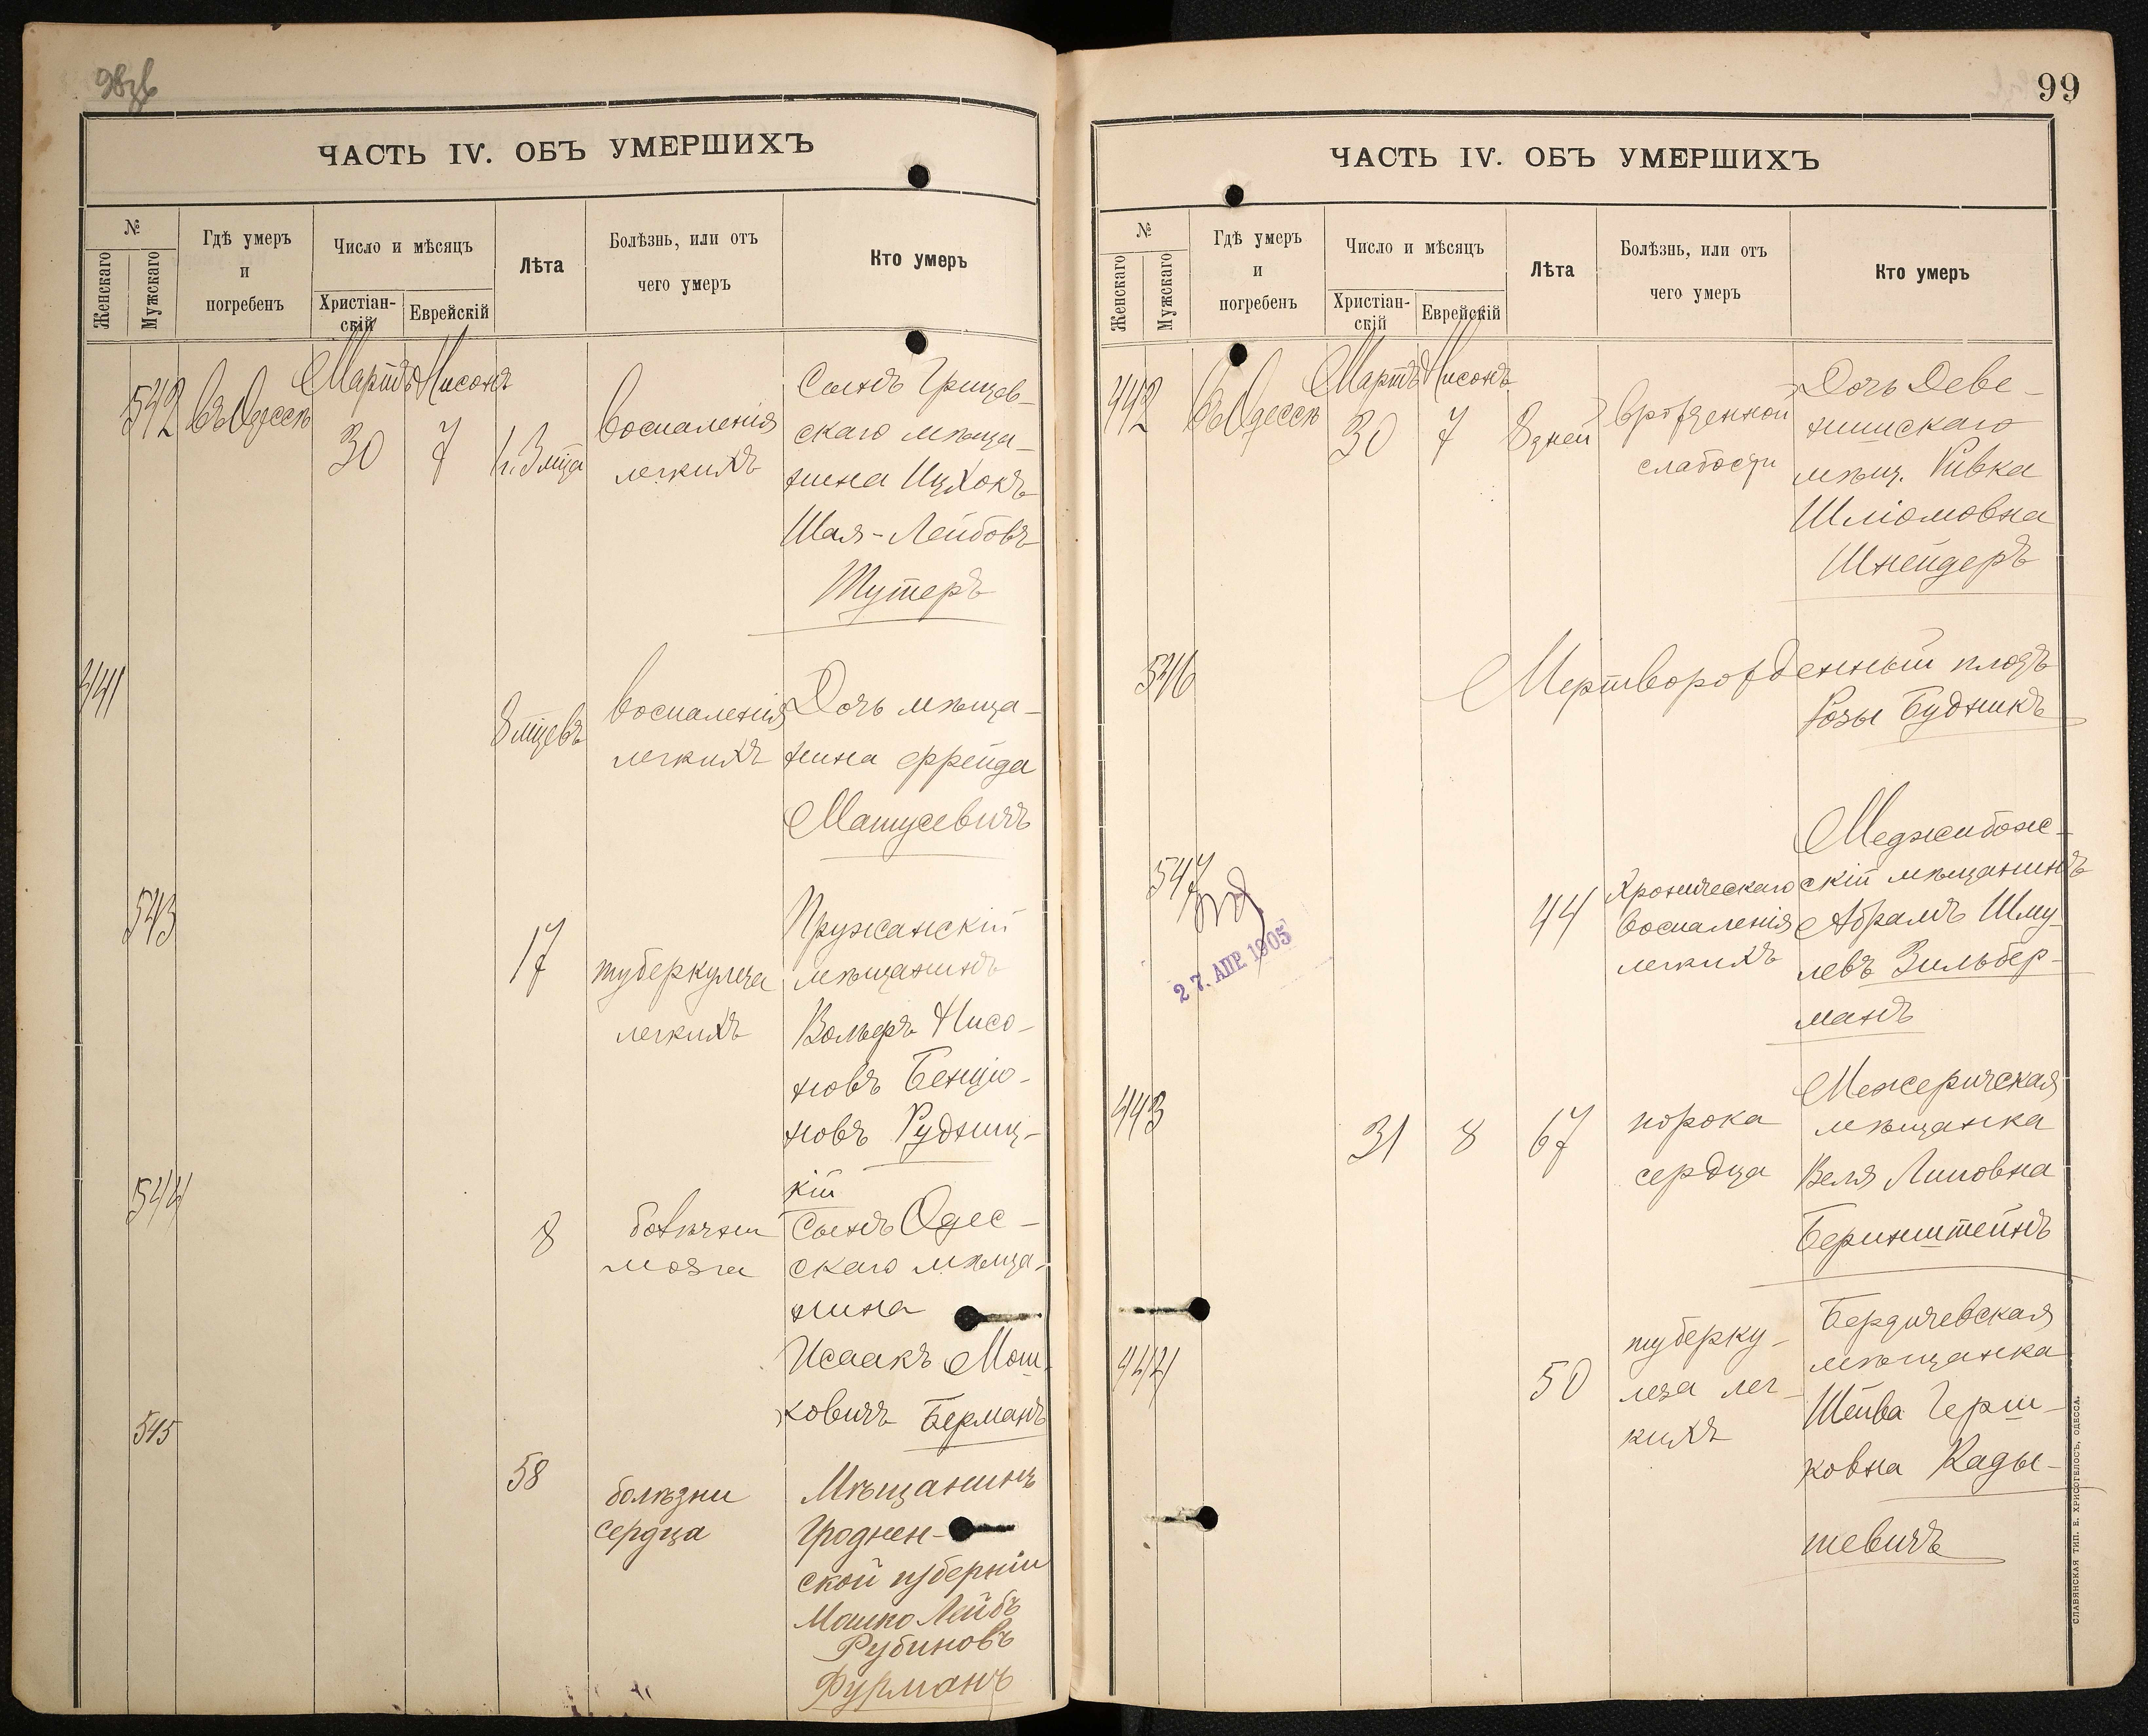 98об
ЧАСТЬ IV. ОБЪ УМЕРШИХЪ
№
Женскаго
Мужскаго
Гдѣ умеръ
и
погребенъ
Число и мѣсяцъ
Христіан-
скій
Еврейскій
Лѣта
Болѣзнь, или отъ
чего умеръ
Кто умеръ
542
въ Одессѣ
Мартъ
30
Нисонъ
7
1 г. 3 мца
воспаленія
легкихъ
Сынъ Грицев-
скаго мѣща-
нина Ицхокъ
Шая-Лейбовъ
Тутеръ
441
8 мцевъ
воспаленія
легкихъ
Дочь мѣща-
нина Фрейда
Матусевичъ
543
17
туберкулеза
легкихъ
Пружанскій
мѣщанинъ
Вольфъ Нисо-
новъ Бенціо-
новъ Рудниц-
кій
544
8
мозга
Сынъ Одес-
скаго мѣща-
нина
Исаакъ Мош-
ковичъ Берманъ
545
58
болѣзни
сердца
Мѣщанинъ
Гроднен-
ской губерніи
Мошко Лейбъ
Рубиновъ
Фурманъ
99
ЧАСТЬ IV. ОБЪ УМЕРШИХЪ
№
Женскаго
Мужскаго
Гдѣ умеръ
и
погребенъ
Число и мѣсяцъ
Христіан-
скій
Еврейскій
Лѣта
Болѣзнь, или отъ
чего умеръ
Кто умеръ
442
въ Одессѣ
Мартъ
30
Нисонъ
7
8 дней
врожденной
слабости
Дочь Деве-
нишскаго
мѣщ. Ривка
Шліомовна
Шнейдеръ
546
Мертворожденный плодъ
Розы Будникъ
547
27. АПР. 1905
44
Хроническаго
воспаленія
легкихъ
Меджибож-
скій мѣщанинъ
Абрамъ Шму-
левъ Зильбер-
манъ
443
31
8
67
порока
сердца
Межеричская
мѣщанка
Веля Липовна
Беринштейнъ
444
50
туберку-
леза лег-
кихъ
Бердичевская
мѣщанка
Шейва Герш-
ковна Кады-
шевичъ
СЛАВЯНСКАЯ ТИП. Е. ХРИСОГЕЛОСЪ, ОДЕССА.